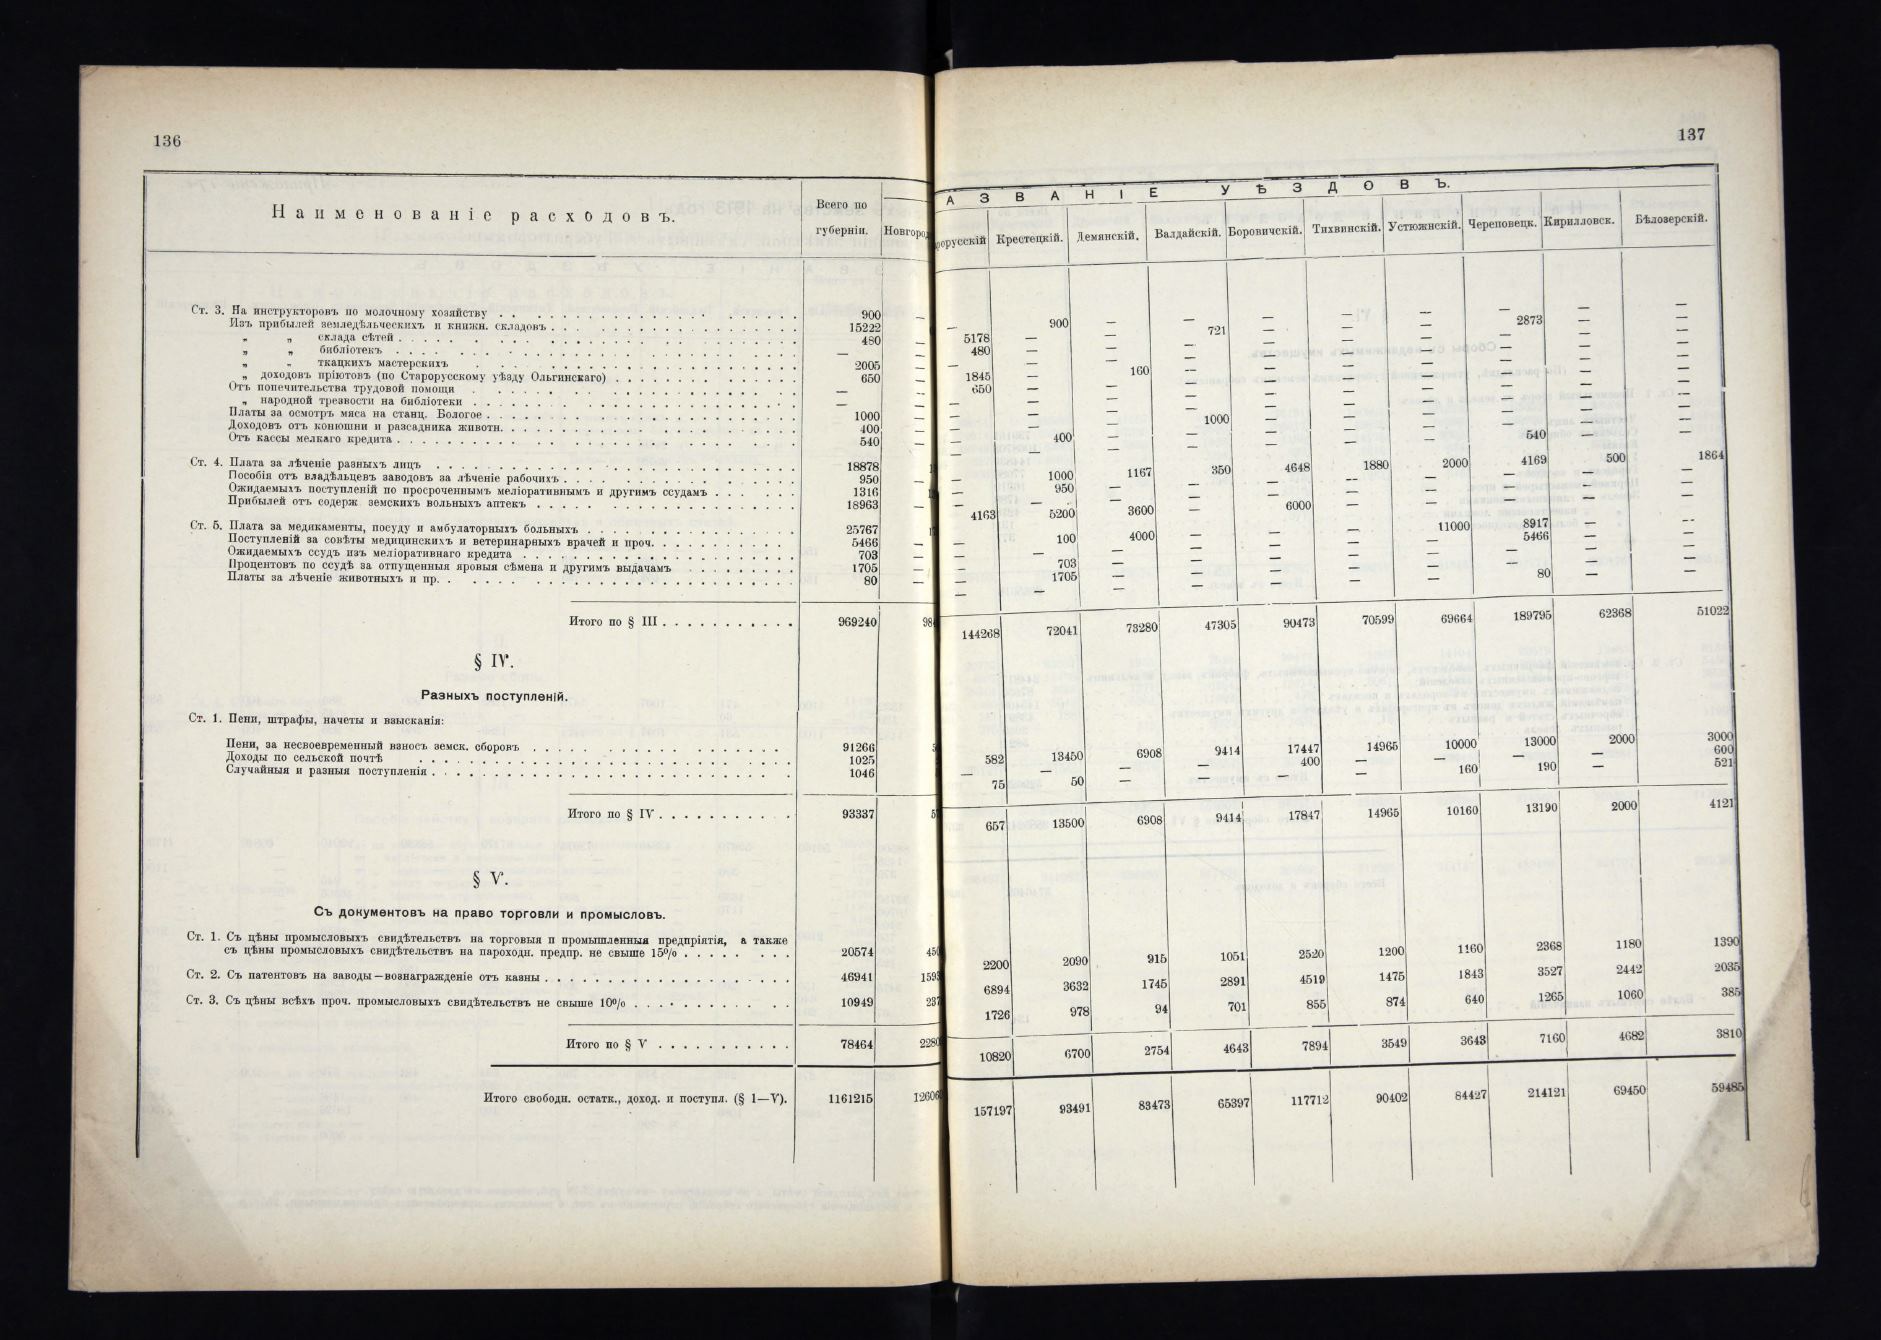 136
Наименованіе расходовъ.
Всего по
губерніи.
Ст. 3. На инструкторовъ по молочному хозяйству 900 —
Изъ прибылей земледѣльческихъ и книжн. складовъ 15222
„ „ склада сѣтей 480 —
„ „ библіотекъ — —
„ „ ткацкихъ мастерскихъ 2005 —
„ доходовъ пріютовъ (по Старорусскому уѣзду Ольгинскаго) 650 —
Отъ попечительства трудовой помощи — —
„ народной трезвости на библіотеки — —
Платы за осмотръ мяса на станц. Бологое 1000 —
Доходовъ отъ конюшни и разсадника животн. 400 —
Отъ кассы мелкаго кредита 540 —
Ст. 4. Плата за лѣченіе разныхъ лицъ 18878
Пособія отъ владѣльцевъ заводовъ за лѣченіе рабочихъ 950 —
Ожидаемыхъ поступленій по просроченнымъ меліоративнымъ и другимъ ссудамъ 1316
Прибылей отъ содерж. земскихъ вольныхъ аптекъ 18963 —
Ст. 5. Плата за медикаменты, посуду и амбулаторныхъ больныхъ 25767
Поступленій за совѣты медицинскихъ и ветеринарныхъ врачей и проч. 5466 —
Ожидаемыхъ ссудъ изъ меліоративнаго кредита 703 —
Процентовъ по ссудѣ за отпущенныя яровыя сѣмена и другимъ выдачамъ 1705 —
Платы за лѣченіе животныхъ и пр. 80 —
Итого по § III 969240
§ IV.
Разныхъ поступленій.
Ст. 1. Пени, штрафы, начеты и взысканія:
Пени, за несвоевременный взносъ земск. сборовъ 91266
Доходы по сельской почтѣ 1025
Случайныя и разныя поступленія 1046
Итого по § IV 93337
§ V.
Съ документовъ на право торговли и промысловъ.
Ст. 1. Съ цѣны промысловыхъ свидѣтельствъ на торговыя п промышленныя предпріятія, а также
съ цѣны промысловыхъ свидѣтельствъ на пароходн. предпр. не свыше 15% 20574
Ст. 2. Съ патентовъ на заводы—вознагражденіе отъ казны 46941
Ст. 3. Съ цѣны всѣхъ проч. промысловыхъ свидѣтельствъ не свыше 10% 10949
Итого по § V 78464
Итого свободн. остатк., доход. и поступл. (§ 1—V). 1161215
137
АЗВАНІЕ УѢЗДОВЪ.
Крестецкій. Демянскій. Валдайскій. Боровичскій. Тихвинскій. Устюжнскій. Череповецк. Кирилловск. Бѣлозерскій.
— 900 — — — — — — — —
5178 — — 721 — — — 2873 — —
480 — — — — — — — — —
— — — — — — — — — —
1845 — 160 — — — — — — —
650 — — — — — — — — —
— — — — — — — — — —
— — — — — — — — — —
— — — 1000 — — — — — —
— 400 — — — — — — — —
— — — — — — — 540 — —
— 1000 1167 350 4648 1880 2000 4169 500 1864
— 950 — — — — — — — —
— — — — — — — — — —
4163 5200 3600 — 6000 — — — — —
— 100 4000 — — — 11000 8917 — —
— — — — — — — 5466 — —
— 703 — — — — — — — —
— 1705 — — — — — — — —
— — — — — — — 80 — —
144268 72041 73280 47305 90473 70599 69664 189795 62368 51022
582 13450 6908 9414 17447 14965 10000 13000 2000 3000
— — — — 400 — — — — 600
75 50 — — — — 160 190 — 521
657 13500 6908 9414 17847 14965 10160 13190 2000 4121
2200 2090 915 1051 2520 1200 1160 2368 1180 1390
6894 3632 1745 2891 4519 1475 1843 3527 2442 2035
1726 978 94 701 855 874 640 1265 1060 385
10820 6700 2754 4643 7894 3549 3643 7160 4682 3810
157197 93491 83473 65397 117712 90402 84427 214121 69450 59485